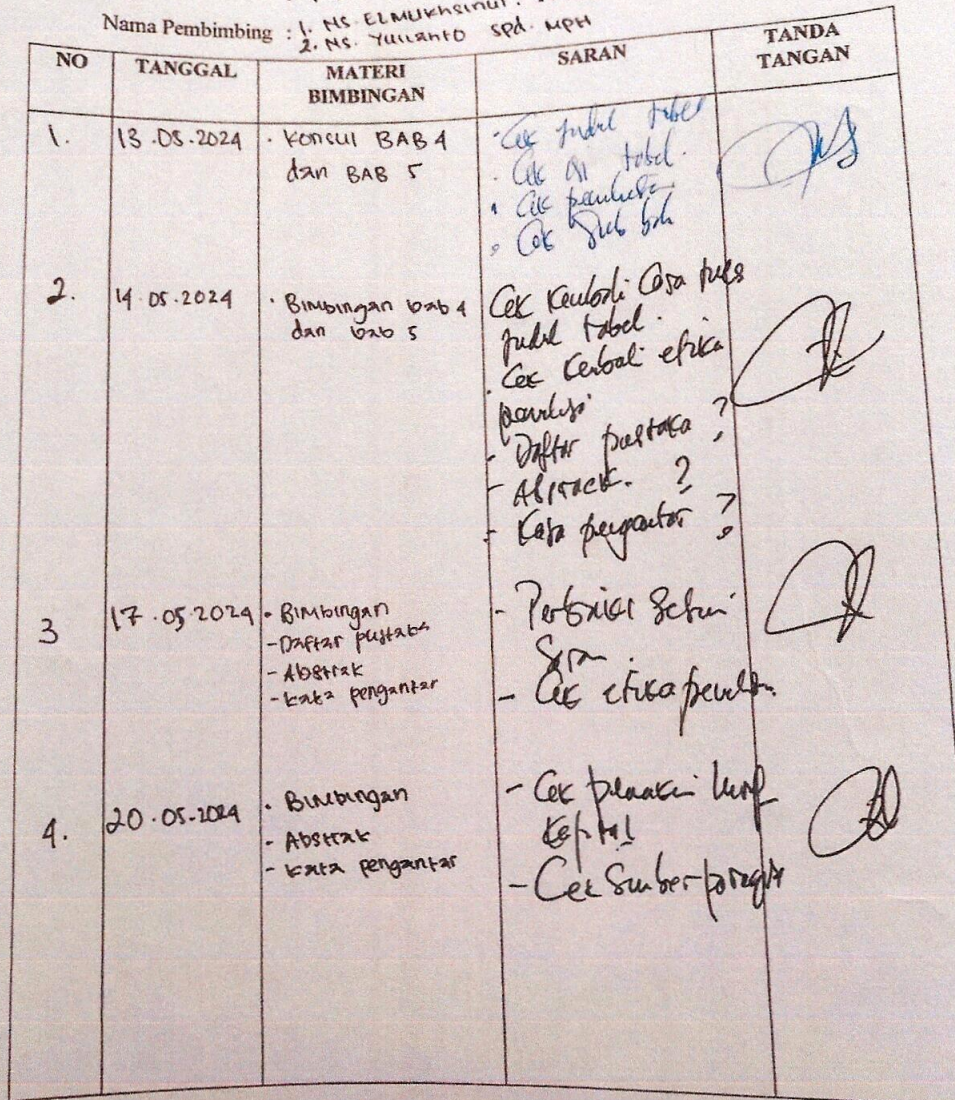 Nama Pembimbing : 1. NS. ELMUKhsinur.
2. NS. Yulianto spd. MPH
NO TANGGAL MATERI BIMBINGAN SARAN TANDA TANGAN
1. 13.05.2024 • Konsul BAB 4
dan BAB 5
- Cek judul tabel
- Cek isi tabel.
• Cek
• Cek sub bab
2. 14.05.2024 • Bimbingan bab 4
dan bab 5
Cek Kembali Cara tulis
judul tabel.
- Cek Kembali etika
penulisan
- Daftar pustaka ?
- Abstrack. ?
- Kata pengantar ?
3 17.05.2024 • Bimbingan
- Daftar pustaka
- Abstrak
- Kata pengantar
- Perbaiki Sesuai
Saran.
- Cek etika penulisan.
4. 20.05.2024 • Bimbingan
- Abstrak
- Kata pengantar
- Cek pemakaian huruf
Kapital
- Cek Sumber paragraf